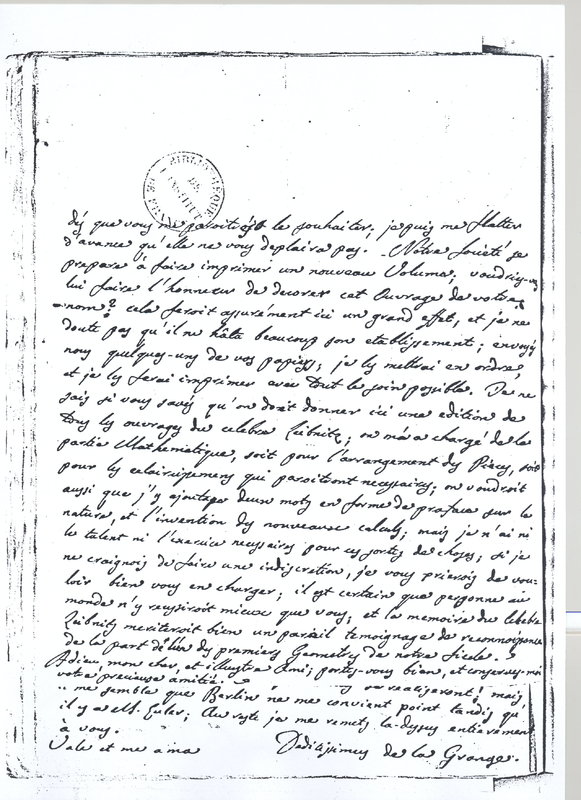 BIBLIOTHEQUE DE L'INSTITUT
dés que vous me paroitrés le souhaiter; je puis me flatter
d'avance qu'elle ne vous deplaira pas. Notre Société se
prepare à faire imprimer un nouveau Volume; voudriés-vous
lui faire l'honneur de decorer cet Ouvrage de votre
nom? cela feroit assurement ici un grand effet, et je ne
doute pas qu'il ne hâte beaucoup son etablissement; envoyés
nous quelques-uns de vos papiers; je les mettrai en ordre,
et je les ferai imprimer avec tout le soin possible. Je ne
sais si vous savés qu'on doit donner ici une edition de
tous les ouvrages du celebre Leibnitz; on m'a chargé de la
partie Mathematique, soit pour l'arrangement des Pieces, soit
pour les eclaircissemens qui paroitront necessaires; on voudroit
aussi que j'y ajoutasse deux mots en forme de preface sur la
nature, et l'invention des nouveaux calculs; mais je n'ai ni
le talent ni l'exercice necessaires pour ces sortes de choses; si je
ne craignois de faire une indiscretion, je vous prierois de vou=
loir bien vous en charger; il est certain que personne au
monde n'y reussiroit mieux que vous; et la memoire du celebre
Leibnitz meriteroit bien un pareil temoignage de reconnoissance
de la part de l'un des premiers Geometres de notre siecle.
Adieu, mon cher, et illustre Ami; portés-vous bien, et conservés-moi
votre precieuse amitié.
se realiseront! mais,
il me semble que Berlin ne me convient point tandis qu'
il y a M. Euler; Au reste je me remets là-dessus entierement
à vous.
Vale et me ama Deditissimus de la Grange.